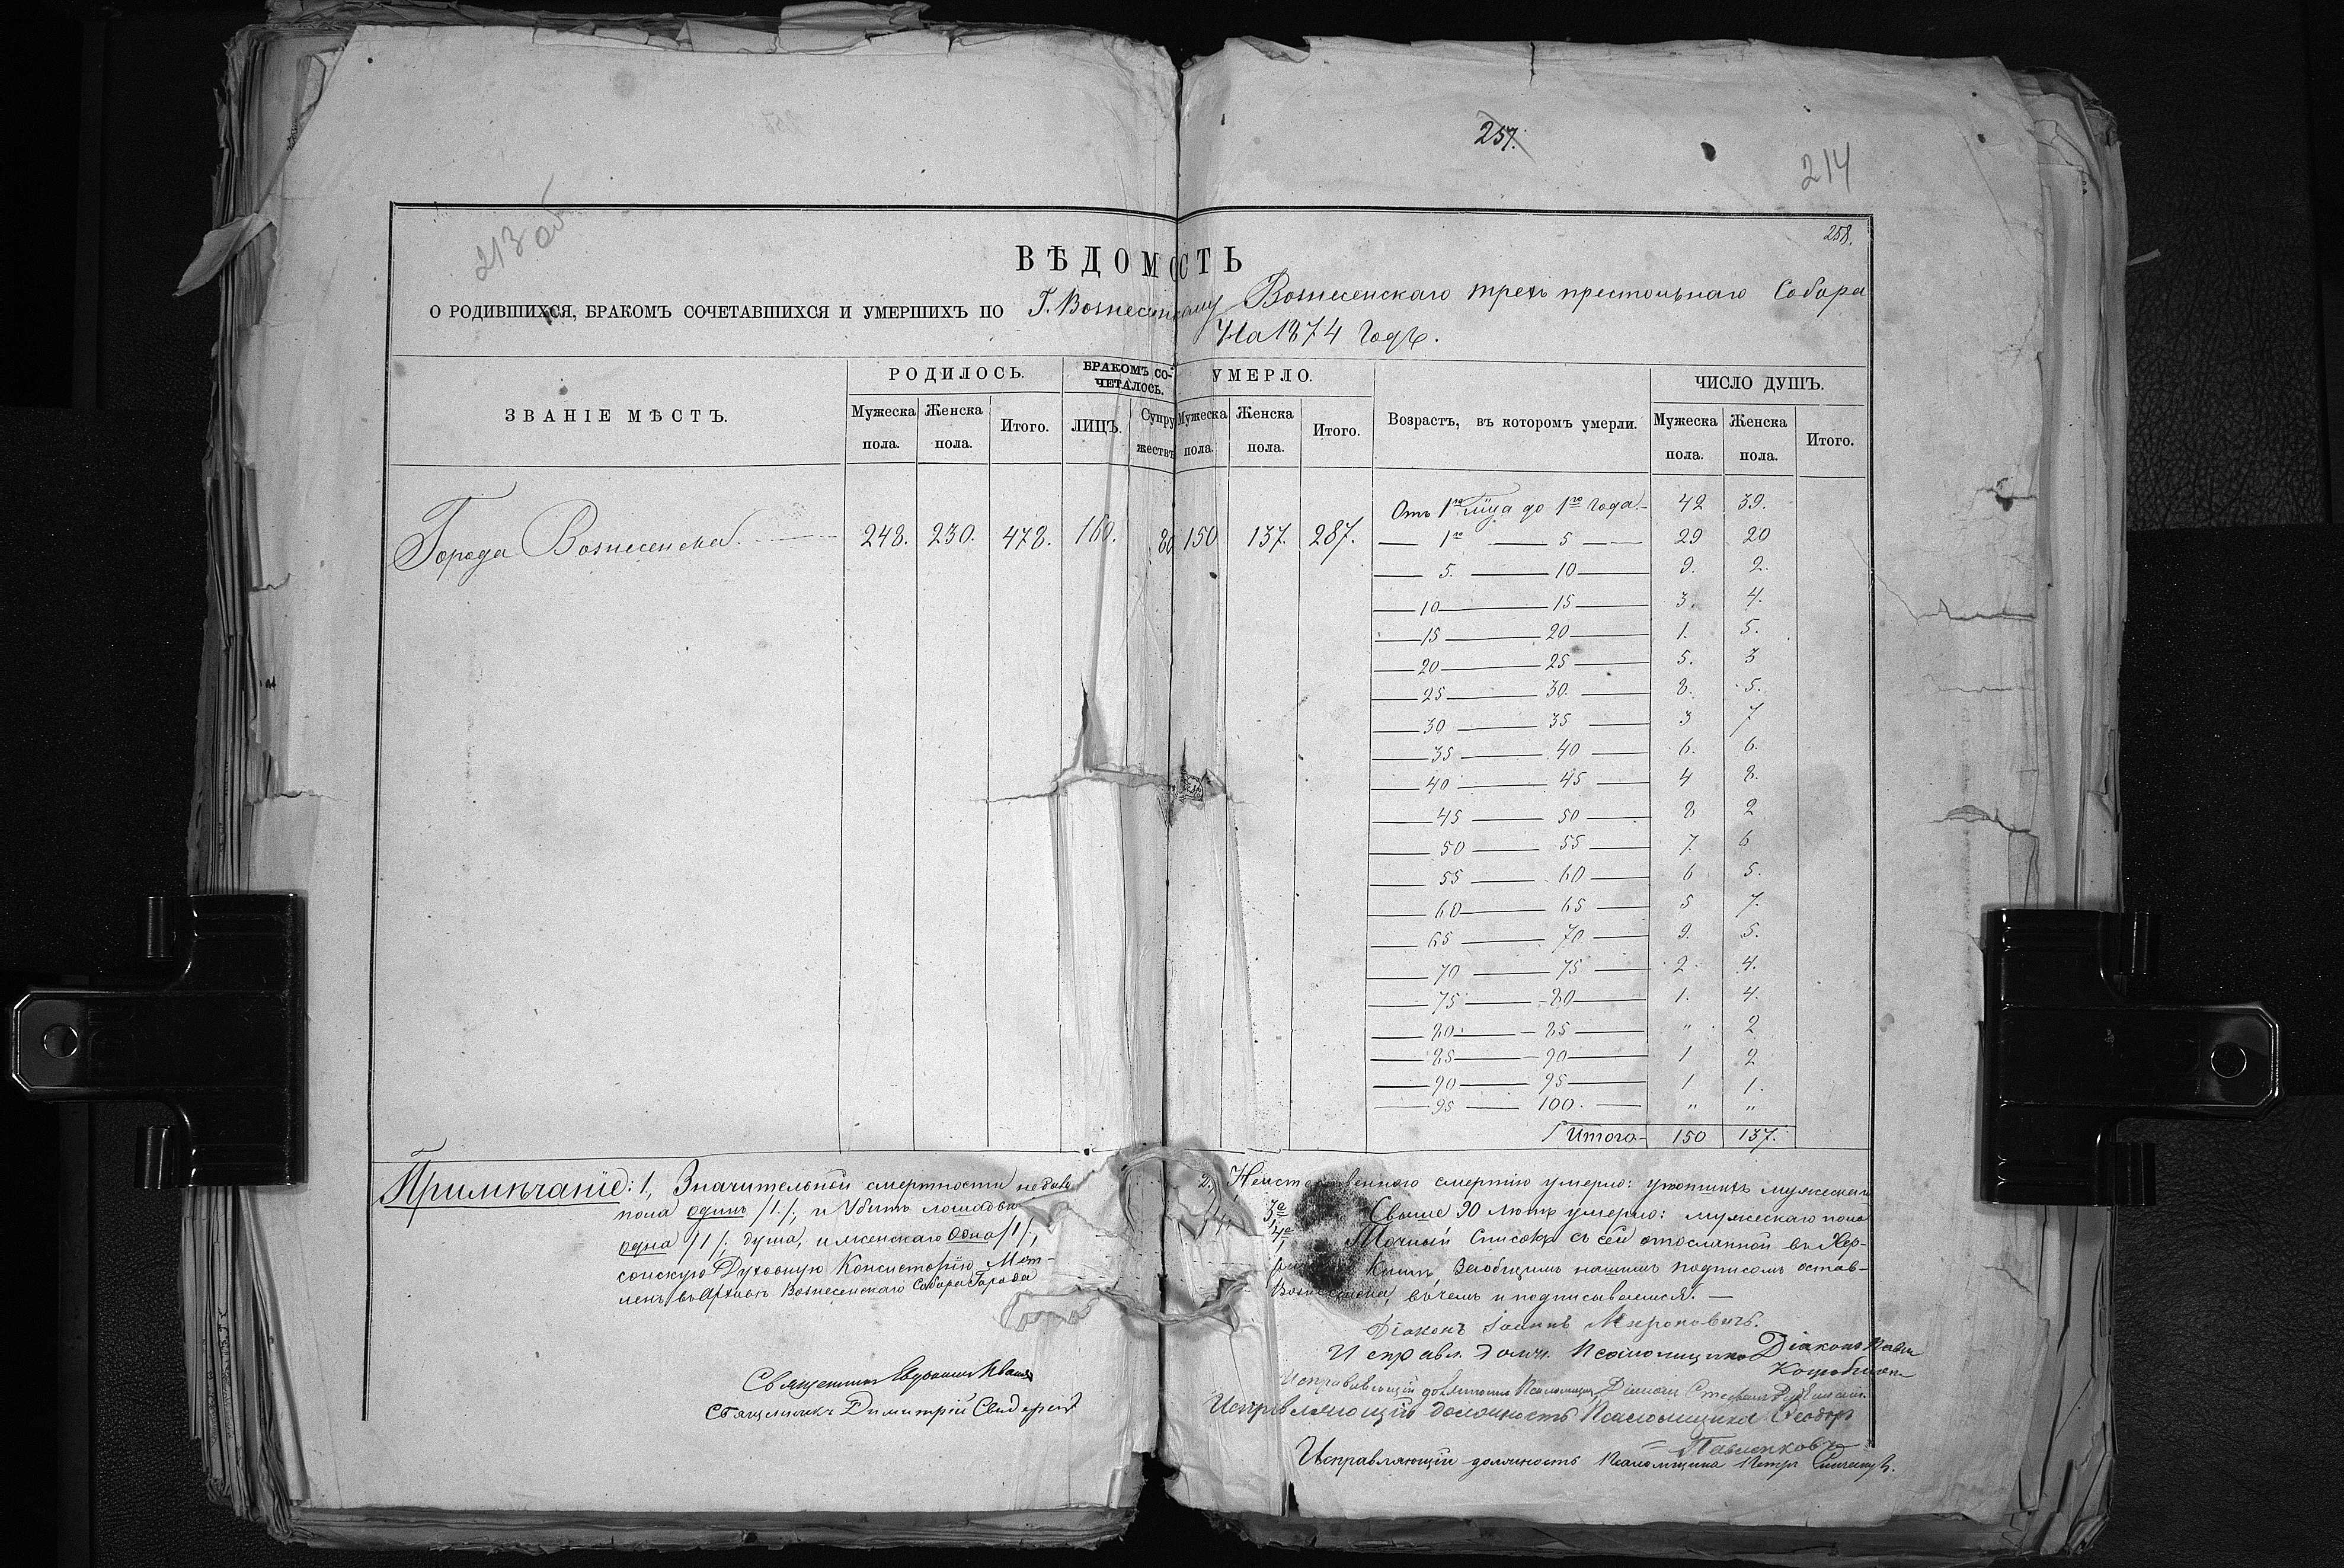 257.
214
213 об
258.
ВѢДОМОСТЬ
О РОДИВШИХСЯ, БРАКОМЪ СОЧЕТАВШИХСЯ И УМЕРШИХЪ ПО Г. Вознесенскому Вознесенскаго трехъ престольнаго Собора
На 1874 Годъ.
ЗВАНІЕ МѢСТЪ.
РОДИЛОСЬ.
Мужеска пола.
Женска пола.
Итого.
БРАКОМЪ СО-
ЧЕТАЛОСЬ.
ЛИЦЪ.
Супру
жествъ
УМЕРЛО.
Мужеска пола.
Женска пола.
Итого.
Возрастъ, въ которомъ умерли.
ЧИСЛО ДУШЪ.
Мужеска пола.
Женска пола.
Итого.
Города Вознесенска. 248. 230. 478. 160. 80 150 137. 287.
Отъ 1го мца до 1го года 42 39.
1го 5 29 20
5. 10 9. 2.
10 15 3. 4.
15 20 1. 5.
20 25 5. 3
25 30. 8. 5.
30 35 3 7
35 40 6. 6.
40 45 4 8.
45 50 8 2
50 55 7. 6
55 60 6 5.
60 65 5 7.
65 70 9. 5.
70 75 2. 4.
75 80 1. 4.
80 85 " 2
85 90 1 2
90 95 1 1.
95 100. " "
Итого 150 137.
Примѣчаніе: 1, Значительной смертности не было 2, Неистественного смертію умерло: утопшихъ мужескаго
пола одинъ /1./, и Убитъ лошадью 3е Свыше 90 лѣтъ умерло: мужескаго пола
одна /1/, душа, и женскаго Одна /1/, 4е Точный Списокъ съ сей отосланной въ Хер-
сонскую Духовную Консисторію Мет- Книги, Заобщимъ нашимъ подписомъ остав-
ленъ въ Архивѣ Вознесенскаго Собора Города Вознесенска, въ чемъ и подписываемся. —
Діаконъ Іоаннъ Мироновичъ.
Исправл. долж. Псаломщика Діаконъ
Священникъ
Исправляющій должность Псаломщика Діаконъ Стефанъ
Священникъ Димитрій
Исправляющій должность Псаломщика Ѳеодоръ
Павленковъ
Исправляющій должность Псаломщика Петръ